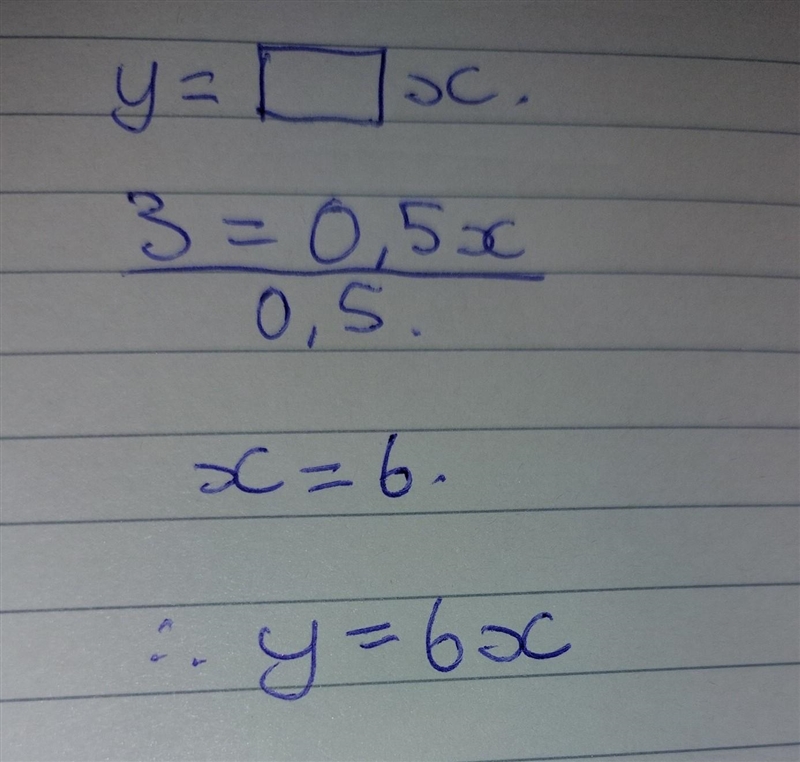 y = □ x.
3 = 0,5x
0,5.
x = 6.
∴ y = 6x